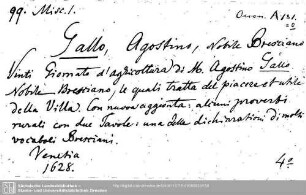 99. Misc. 1.
Oecon. A 121.
Gallo, Agostino, Nobile Bresciano
Vinti Giornate d'agricoltura di M. Agostino Gallo
Nobile Bresciano, le quali tratta del piacere et utile
della Villa. Con nuova aggionta: alcuni proverbi
rurali con due Tavole: una delle dichiarationi di molti
vocaboli Bresciani.
Venetia
4°
1628.
Sächsische Landesbibliothek -
Staats- und Universitätsbibliothek Dresden